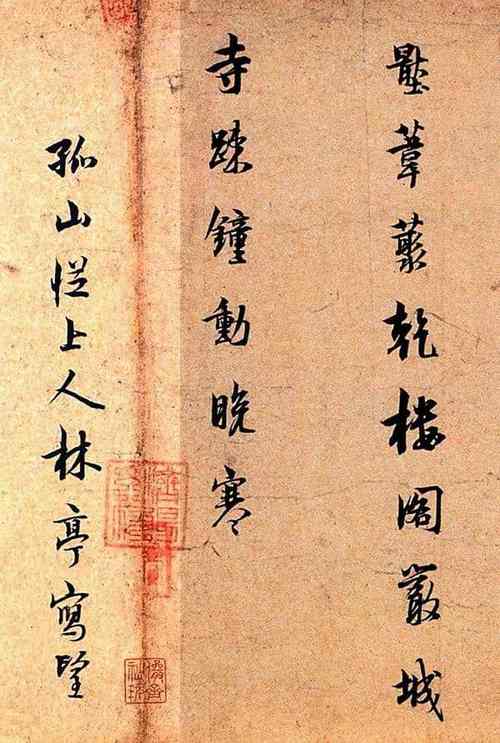 壓葦藂乾樓閣嚴城
寺踈鐘動晚寒
孤山從上人林亭寫望